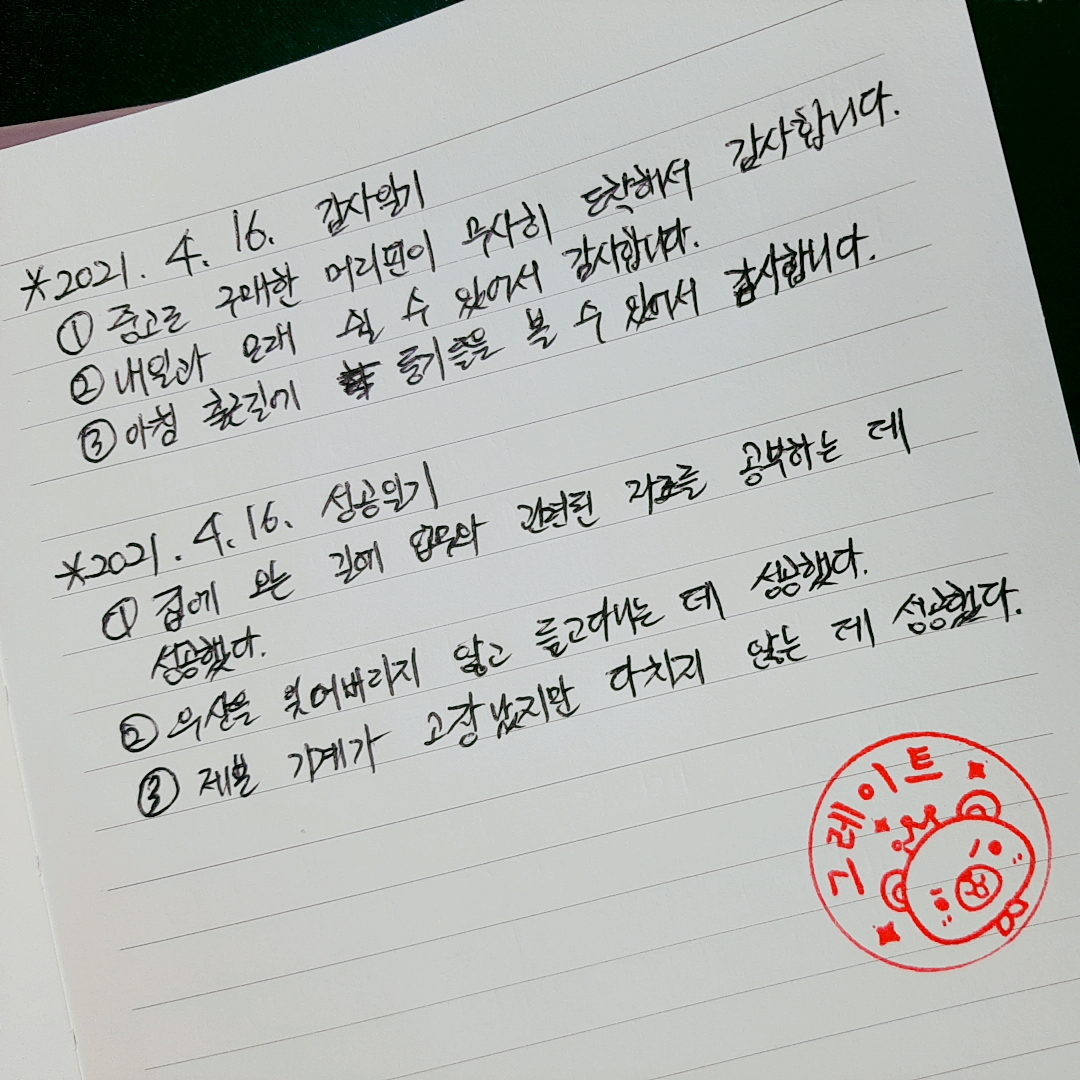 *2021. 4. 16. 감사일기
① 중고로 구매한 머리핀이 무사히 도착해서 감사합니다.
② 내일과 모래 쉴 수 있어서 감사합니다.
③ 아침 출근길에 동기들을 볼 수 있어서 감사합니다.
*2021. 4. 16. 성공일기
① 집에 오는 길에 업무와 관련된 자료를 공부하는 데
성공했다.
② 우산을 잊어버리지 않고 들고다니는 데 성공했다.
③ 제본 기계가 고장났지만 다치지 않는 데 성공했다.
그레이트